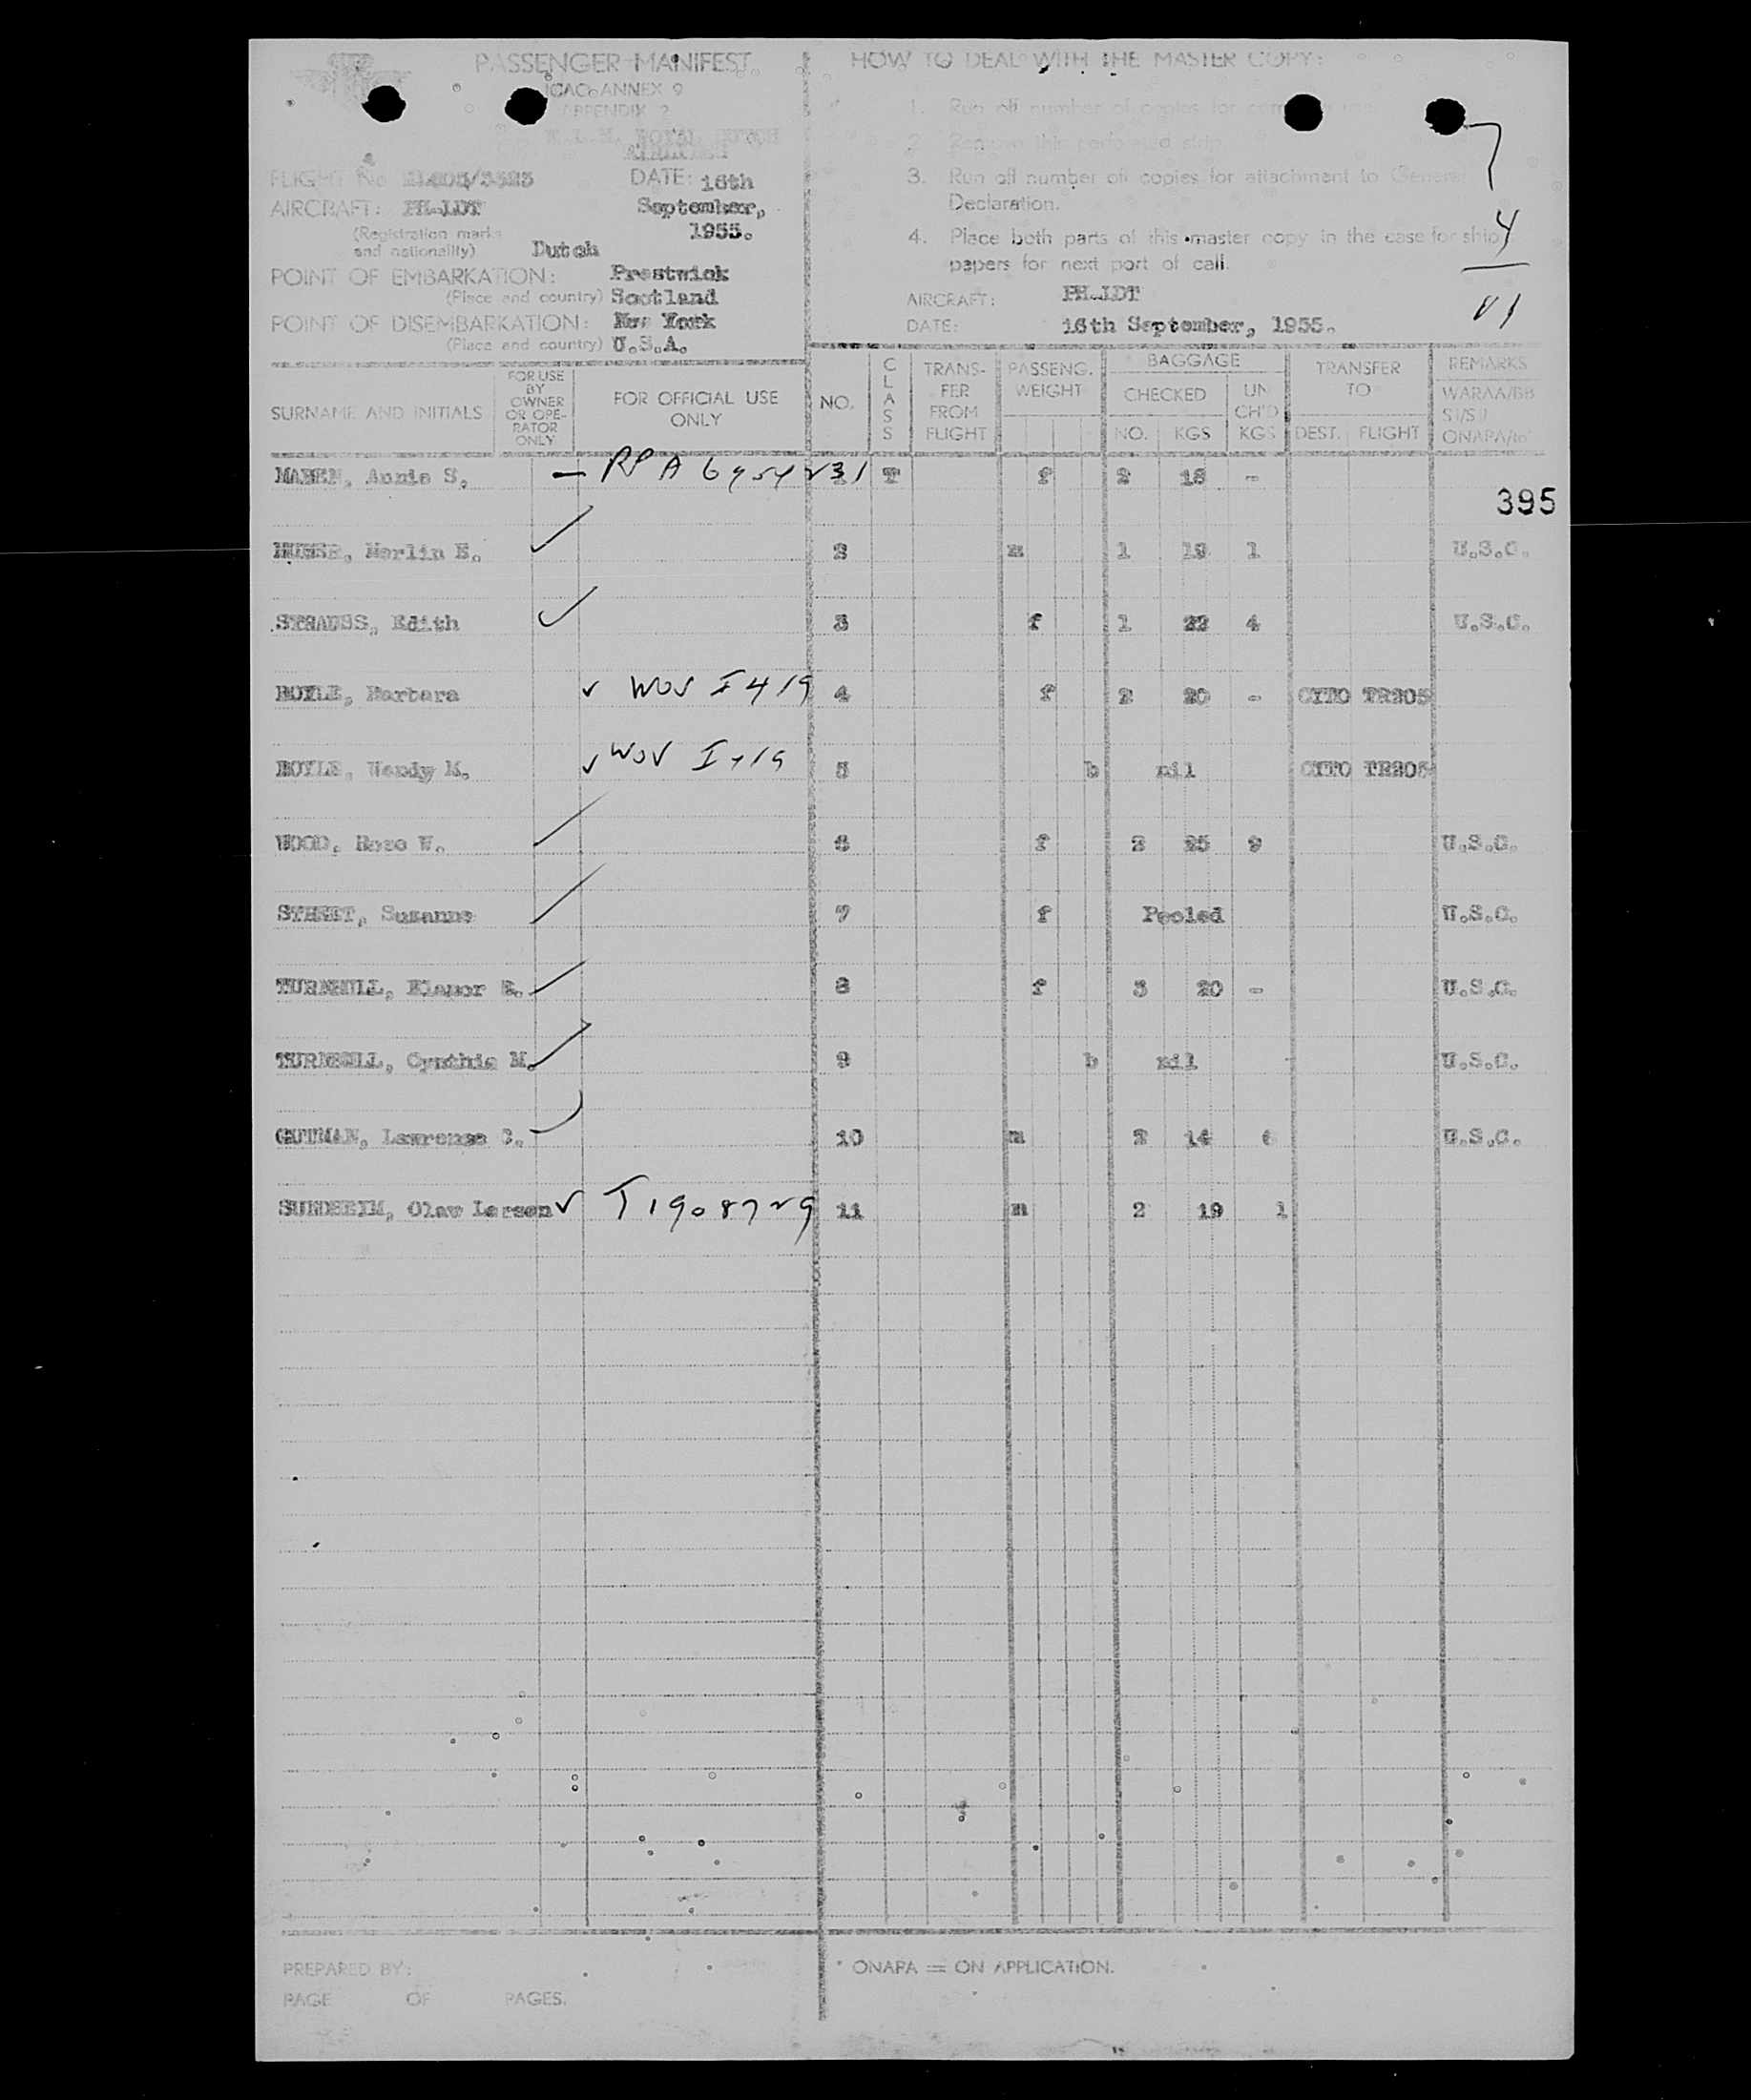 PASSENGER MANIFEST
ICAO ANNEX 9
APPENDIX 2
K.L.M. ROYAL DUTCH
AIRLINES
FLIGHT No
DATE: 16th
September,
1955.
AIRCRAFT: PH-LDT
(Registration marks
and nationality) Dutch
POINT OF EMBARKATION: Prestwick
(Place and country) Scotland
POINT OF DISEMBARKATION: New York
(Place and country) U.S.A.
HOW TO DEAL WITH THE MASTER COPY:
1. Run off number of copies for
2. Remove this perforated strip
3. Run off number of copies for attachment to General
Declaration.
4. Place both parts of this master copy in the case for ship's
papers for next port of call.
AIRCRAFT: PH-LDT
DATE: 16th September, 1955.
7
4
11
SURNAME AND INITIALS FOR USE BY OWNER OR OPERATOR ONLY FOR OFFICIAL USE ONLY NO. CLASS TRANSFER FROM FLIGHT PASSENG. WEIGHT BAGGAGE CHECKED NO. KGS UN CH'D KGS TRANSFER TO DEST. FLIGHT REMARKS
ONAPA/to*
Annie S. — RPA T f 2 18 -
395
Merlin E. 2 m 1 19 1 U.S.C.
STRAUSS, Edith 3 f 1 22 4 U.S.C.
BOYLE, Barbara ✓ WOV I 419 4 f 2 20 - CYTO TR205
BOYLE, Wendy M. ✓ WOV I 419 5 b nil CYTO TR205
WOOD, Rose W. 6 f 2 25 9 U.S.C.
STREET, Suzanne 7 f Pooled U.S.C.
TURNBULL, Elanor R. 8 f 3 20 - U.S.C.
TURNBULL, Cynthia M. 9 b nil U.S.C.
GUTMAN, Lawrence C. 10 m 2 14 6 U.S.C.
SUNDHEIM, Olaw Larsen ✓ T1908729 11 m 2 19 1
PREPARED BY:
PAGE OF PAGES.
* ONAPA = ON APPLICATION.